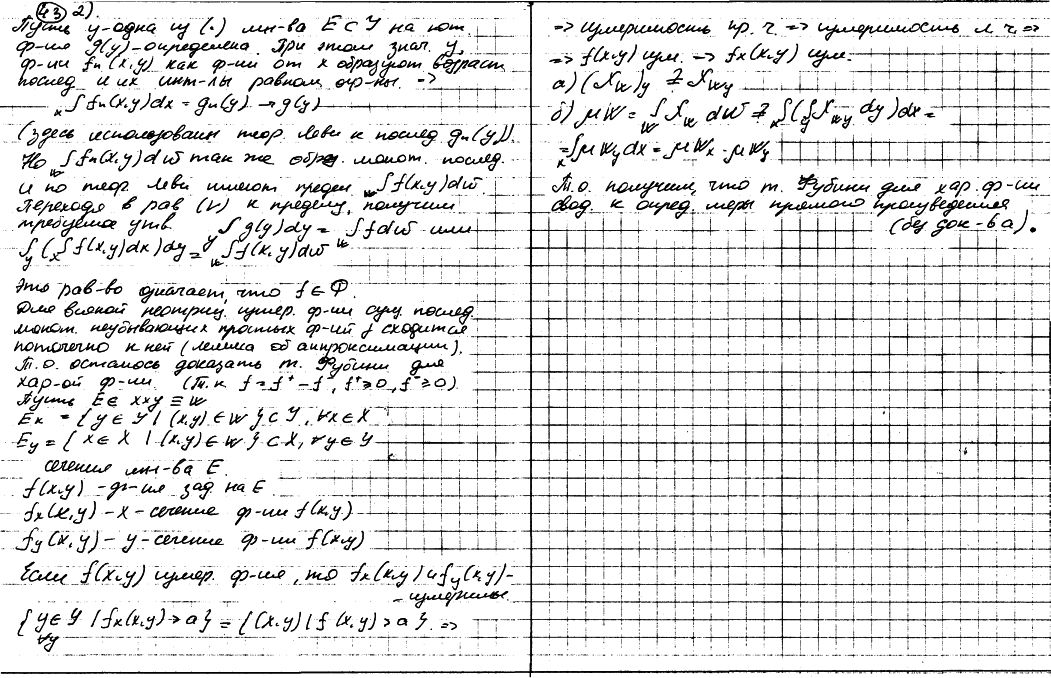 43 2)
Пусть y-одна из (·) мн-ва E⊂Y на кот.
ф-ция g(y)-определена. При этом знач. y,
ф-ии fn(x,y) как ф-ии от x образуют возраст.
послед. и их инт-лы равном. огр-ны. =>
x∫fn(x,y)dx = gn(y) → g(y)
(здесь использованы теор. Леви к послед. gn(y)).
Но w∫fn(x,y)dw̄ так же образ. монот. послед.
и по теор. Леви имеют предел w∫f(x,y)dw̄
Переходя в рав (V) к пределу, получим
требуемое утв. y∫g(y)dy = w∫fdw̄ или
y∫(x∫f(x,y)dx)dy = w∫f(x,y)dw̄
Это рав-во означает, что f∈Φ.
Для всякой неотриц. измер. ф-ии сущ. послед.
монот. неубывающих простых ф-ий и сходится
поточечно к ней (лемма об аппроксимации).
Т.о. осталось доказать т. Фубини для
хар-ой ф-ии. (Т.к f = f⁺ - f⁻, f⁺≥0, f⁻≥0)
Пусть E∈ X×Y ≡ W
Ex = {y∈Y | (x,y)∈W}⊂Y, ∀x∈X
Ey = {x∈X | (x,y)∈W}⊂X, ∀y∈Y
сечения мн-ва E.
f(x,y) - ф-ия зад. на E
fx(x,y) - x - сечение ф-ии f(x,y)
fy(x,y) - y - сечение ф-ии f(x,y)
Если f(x,y) измер. ф-ия, то fx(x,y) и fy(x,y)-
- измеримые
{y∈Y | fx(x,y)>a} = {(x,y) | f(x,y)>a}. =>
∀y
=> измеримость пр. ч. => измеримость л. ч. =>
=> f(x,y) изм. => fx(x,y) изм.
а) (Xw)y ≢ Xwy
б) μW = w∫Xw dw̄ ≢ x∫(y∫Xwy dy)dx =
= x∫μWy dx = μWx · μWy
Т.о. получим, что т. Фубини для хар. ф-ии
свод. к опред. меры прямого произведения
(без док-ва).